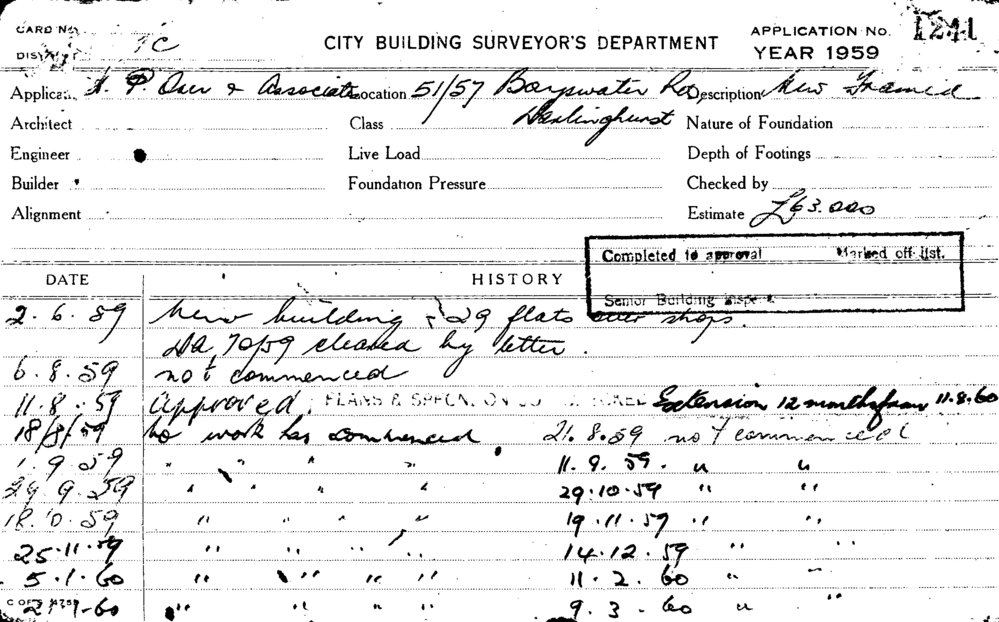 CARD No. APPLICATION No. 1241
DISTRICT 7C CITY BUILDING SURVEYOR'S DEPARTMENT YEAR 1959
Applicant & Associates Location 51/57 Bayswater Rd Description New Framed
Architect Class Darlinghurst Nature of Foundation
Engineer Live Load Depth of Footings
Builder Foundation Pressure Checked by
Alignment Estimate £63.000
Completed to approval Marked off list.
DATE HISTORY
Senior Building Inspector
2.6.59 New building 29 flats over shops.
DA 70/59 cleared by letter.
6.8.59 not commenced
11.8.59 Approved. PLANS & Extension 12 months from 11.8.60
18/8/59 No work has commenced 21.8.59 not commenced
1.9.59 " " " " 11.9.59. " "
29.9.59 " " " " 29.10.59 " "
18.10.59 " " " " 19.11.59 " "
25.11.59 " " " " 14.12.59 " "
5.1.60 " " " " 11.2.60 " "
1-60 " " " " 9.3.60 " "